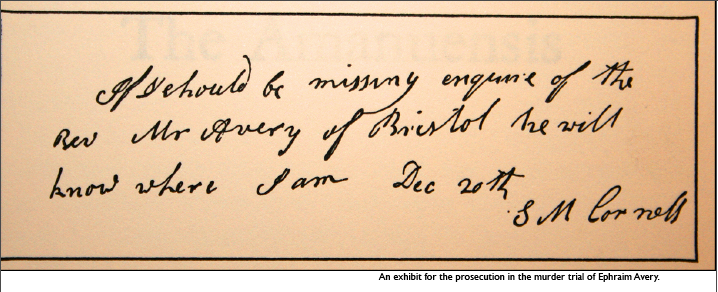 The Amanuensis
If I should be missing enquire of the
Rev Mr Avery of Bristol he will
know where I am Dec 20th
S M Cornell
An exhibit for the prosecution in the murder trial of Ephraim Avery.